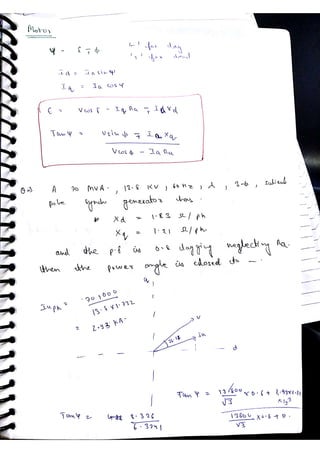 Motor
ψ = δ ∓ φ
'-' for lag
'+' for lead
Id = Ia sinψ
Iq = Ia cosψ
E = Vcosδ - IqRa ∓ IdXd
Tanψ = Vsinφ ∓ IaXq
Vcosφ - IaRa
A 70 MVA, 13.8 KV, 60 Hz, λ, 3-φ, salient
pole synch generator has
Xd = 1.83 Ω/ph
Xq = 1.21 Ω/ph
and the p.f is 0.8 lagging neglecting Ra.
then the power angle is closed to —.
Iaph = 70×1000
13.8×1.732
= 2.93 KA
q
V
Ia
d
Tanψ = 13800/√3 × 0.6 + 2.93×1.21
×10³
13800/√3 × 0.8 + 0.
Tanψ = 8.326